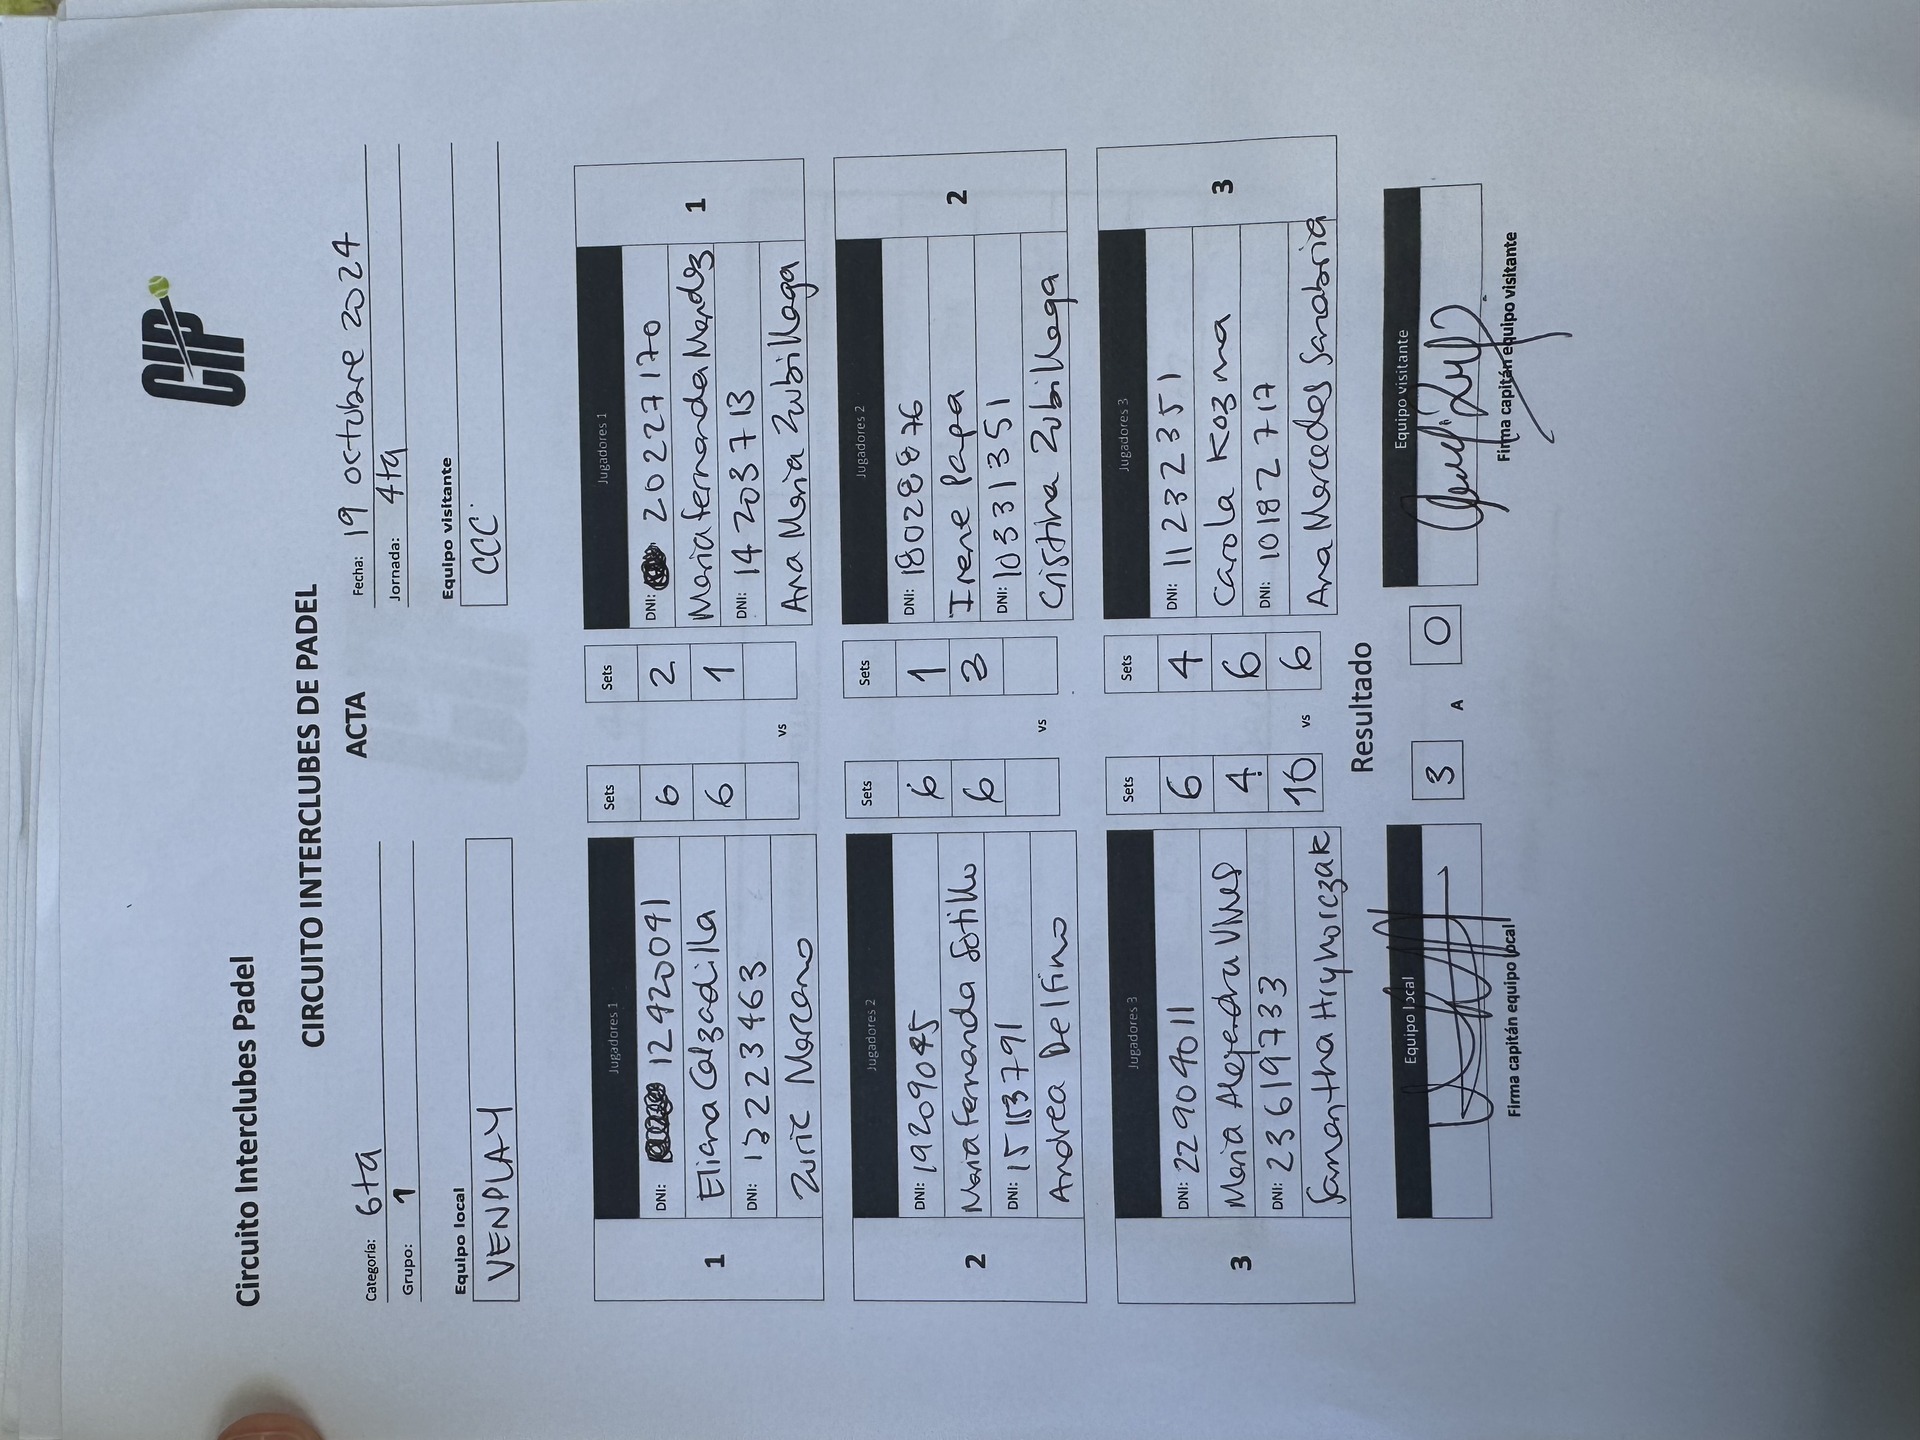 CIP
Circuito Interclubes Padel
CIRCUITO INTERCLUBES DE PADEL
ACTA
Categoría: 6ta
Fecha: 19 octubre 2024
Grupo: 1
Jornada: 4ta
Equipo local
Equipo visitante
VENPLAY
CCC
1 Jugadores 1 Sets Sets Jugadores 1 1
DNI: 12420091 6 2 DNI: 20227170
Eliana Calzadilla 6 1 Maria Fernanda Mendez
DNI: 13223463 DNI: 14203713
Zuric Marcano vs Ana Maria Zubillaga
2 Jugadores 2 Sets Sets Jugadores 2 2
DNI: 19209045 6 1 DNI: 18028876
Maria Fernanda Sotillo 6 3 Irene Papa
DNI: 15153791 DNI: 10331351
Andrea Delfino vs Cristina Zubillaga
3 Jugadores 3 Sets Sets Jugadores 3 3
DNI: 22904011 6 4 DNI: 11232351
Maria Alejandra 4 6 Carola Kozma
DNI: 23619733 10 6 DNI: 10182717
Samantha Hryhorczak vs Ana Mercedes Sanabria
Resultado
Equipo local 3 A 0 Equipo visitante
Firma capitán equipo local
Firma capitán equipo visitante